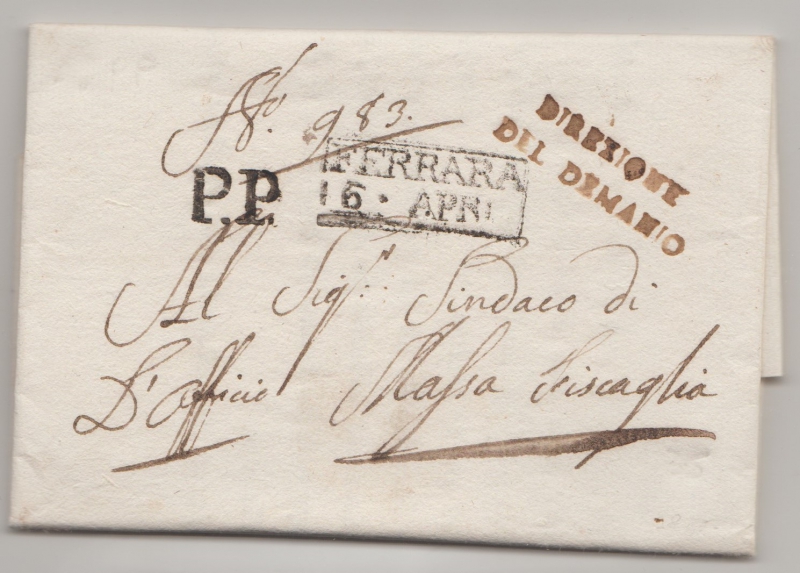 N.º 983.
P.P.
FERRARA
16 · APRI
DIREZIONE
DEL DEMANIO
Al Sigr. Sindaco di
D'Officio Massa Fiscaglia